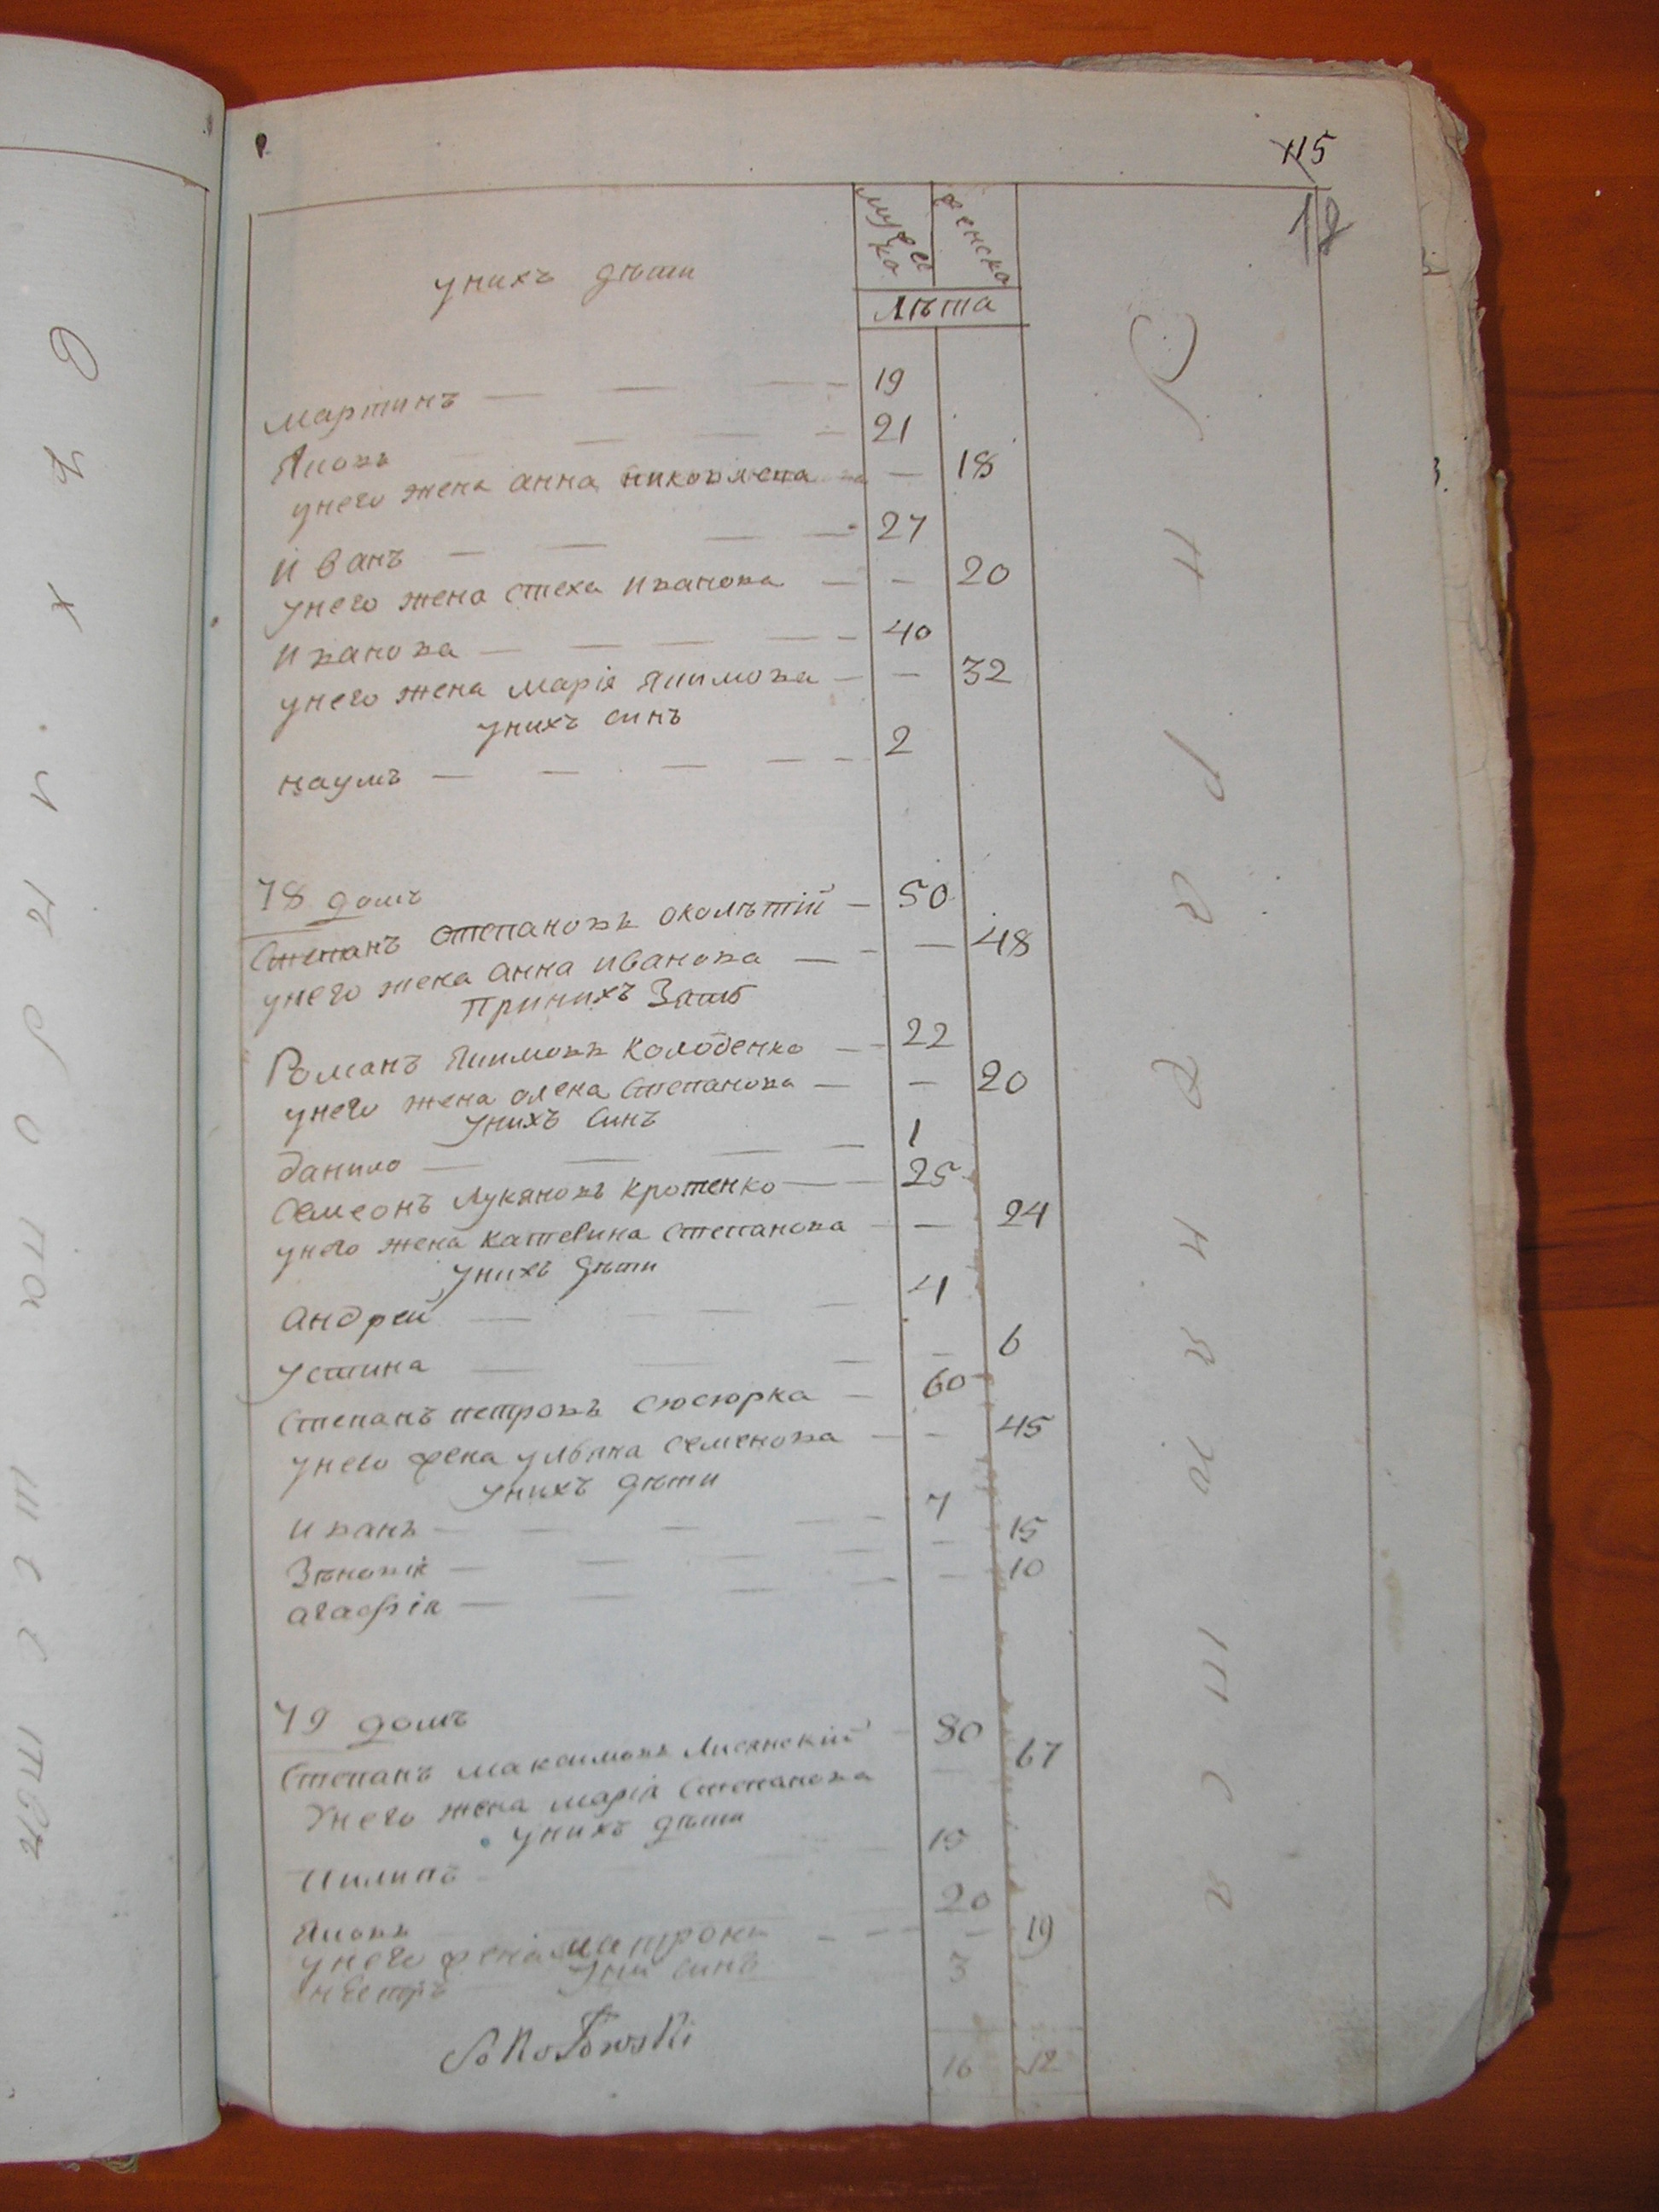 115
12
мужеска женска
унихъ дѣти
Лѣта
мартинъ — — — — 19
Яковъ — — — 21
унего жена анна — 18
иванъ — — — — 27
унего жена стеха иванова — — 20
иванова — — — — — 40
унего жена марія якимова — — 32
унихъ синъ
наумъ — — — — — 2
78 домъ
Степанъ степановъ околѣтій — 50
унего жена анна иванова — — — 48
принихъ зать
Романъ якимовъ колоденко — — 22
унего жена олена степанова — — 20
унихъ синъ
данило — — — — 1
Семеонъ лукяновъ кротенко — — 25
унего жена катерина степанова — — 24
унихъ дѣти
андрей — — — 4
устина — — — — 6
степанъ петровъ сюсюрка — 60
унего жена уляна семенова — — 45
унихъ дѣти
иванъ — — — — — 7
Зѣновія — — — — — 15
агафія — — — — — — 10
79 домъ
Степанъ максимовъ лисянскій — 80
Унего жена марія степанова — 67
унихъ дѣти
Пилипъ — 15
Яковъ — 20
унего жена — — — — 19
синъ 3
Sokołowski
16 12